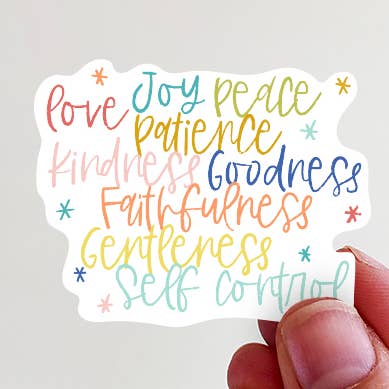 love Joy peace
patience
kindness Goodness
Faithfulness
Gentleness
Self control